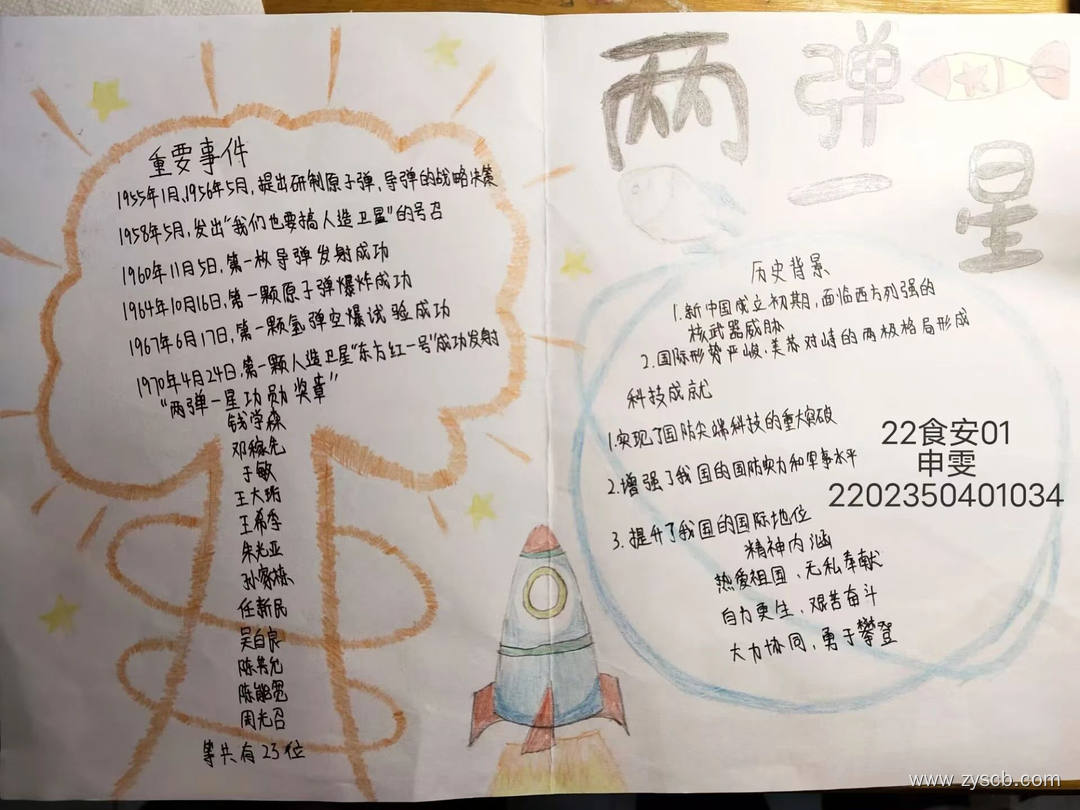 两弹一星
重要事件
1955年1月、1956年5月,提出研制原子弹,导弹的战略决策
1958年5月,发出“我们也要搞人造卫星”的号召
1960年11月5日,第一枚导弹发射成功
1964年10月16日,第一颗原子弹爆炸成功
1967年6月17日,第一颗氢弹空爆试验成功
1970年4月24日,第一颗人造卫星“东方红一号”成功发射
“两弹一星功勋奖章”
钱学森
邓稼先
于敏
王大珩
王希季
朱光亚
孙家栋
任新民
吴自良
陈芳允
陈能宽
周光召
等共有23位
历史背景
1.新中国成立初期,面临西方列强的
核武器威胁
2.国际形势严峻,美苏对峙的两极格局形成
科技成就
1.实现了国防尖端科技的重大突破
2.增强了我国的国防实力和军事水平
3.提升了我国的国际地位
精神内涵
热爱祖国、无私奉献
自力更生、艰苦奋斗
大力协同,勇于攀登
22食安01
申雯
2202350401034
www.zyscb.com